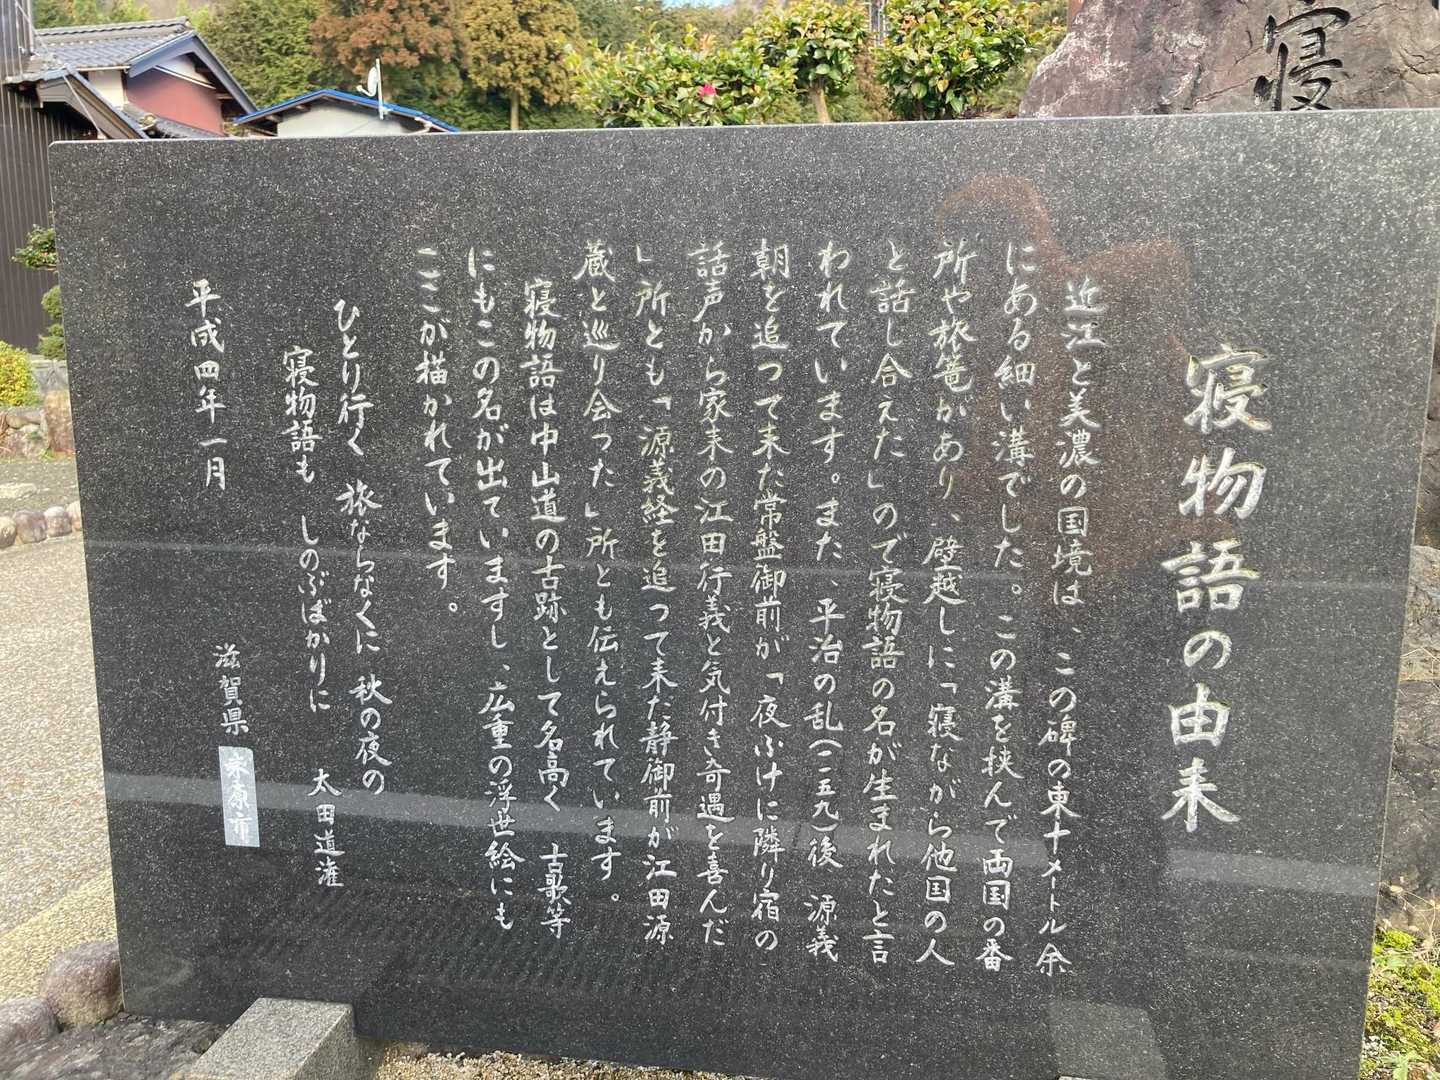 寝
寝物語の由来
近江と美濃の国境は、この碑の東十メートル余
にある細い溝でした。この溝を挟んで両国の番
所や旅篭があり、壁越しに「寝ながら他国の人
と話し合えた」ので寝物語の名が生まれたと言
われています。また、平治の乱(一一五九)後 源義
朝を追って来た常盤御前が「夜ふけに隣り宿の
話声から家来の江田行義と気付き奇遇を喜んだ
」所とも「源義経を追って来た静御前が江田源
蔵と巡り会った」所とも伝えられています。
寝物語は中山道の古跡として名高く 古歌等
にもこの名が出ていますし、広重の浮世絵にも
ここが描かれています。
ひとり行く 旅ならなくに 秋の夜の
寝物語も しのぶばかりに 太田道潅
平成四年一月
滋賀県 米原市